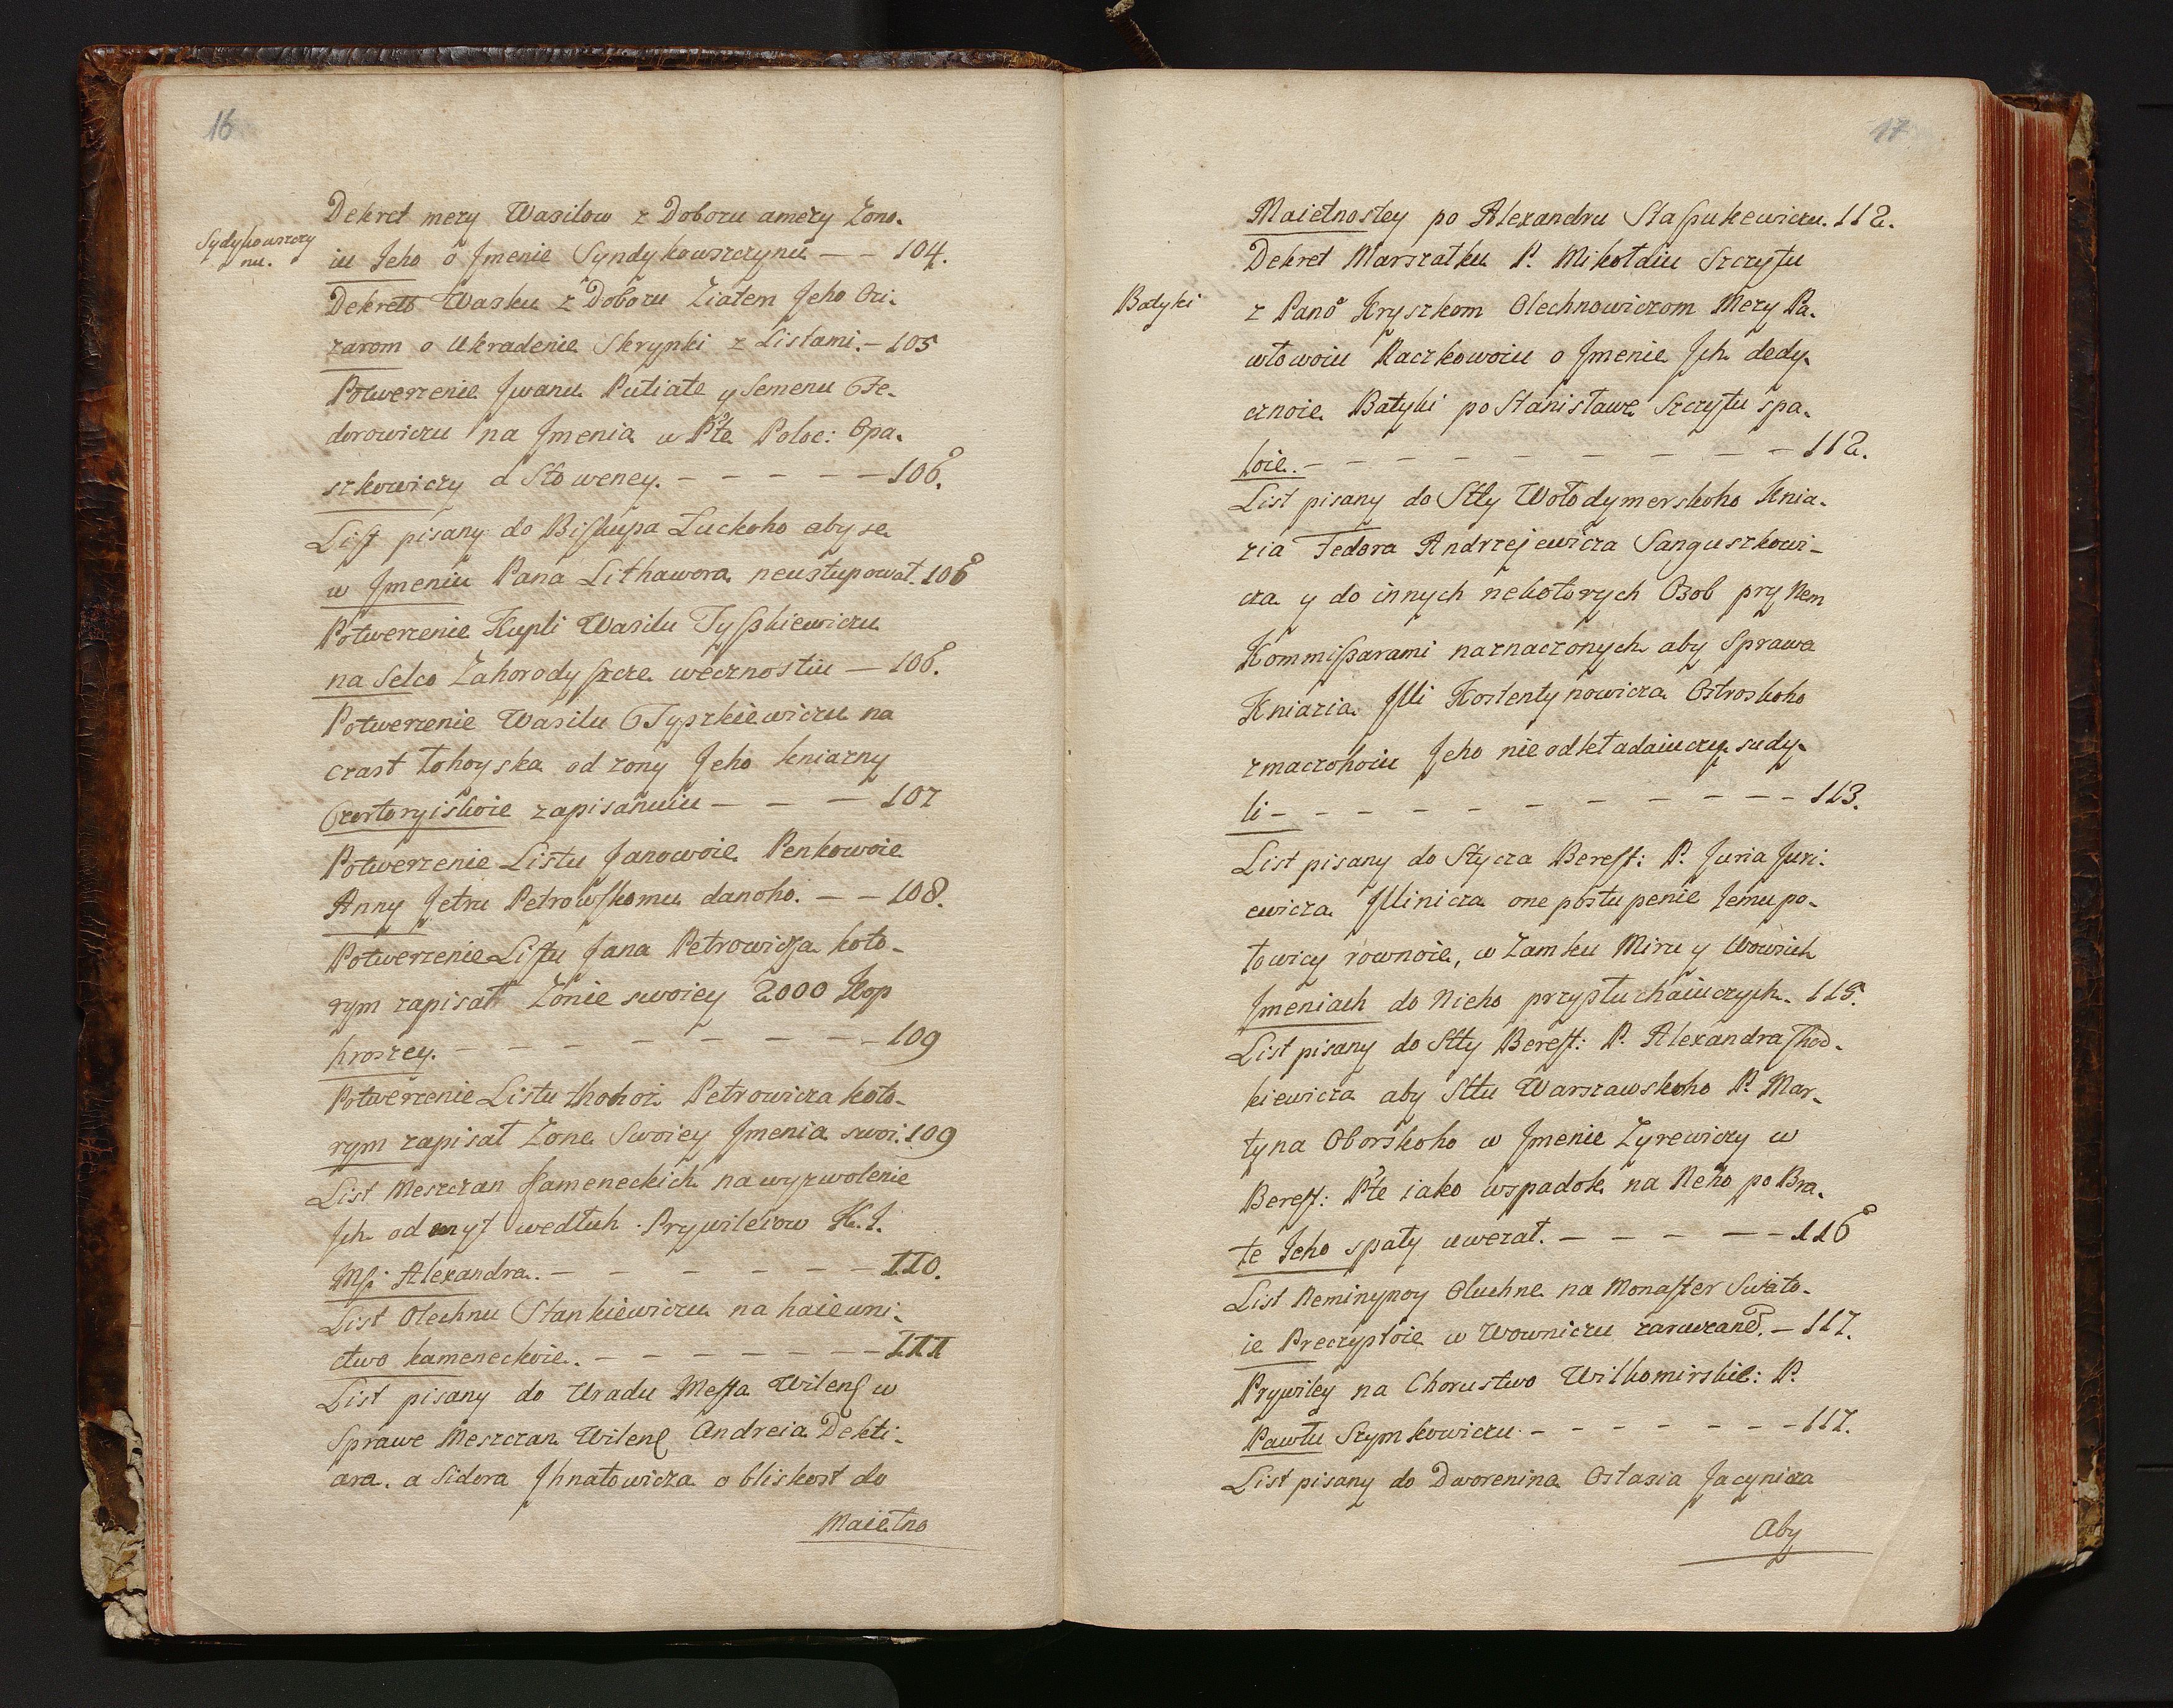 16
Dekret mezy Wasilow z Doboru a mezy Zono.
Sydykowszczy
nu.
iu Jeho o Jmenie Syndykowszczynu — — 104.
Dekret Wasku z Doboru Ziatem Jeho Ozi.
zarom o Ukradenie Skrynki z Listami. — 105
Potwerzenie Jwanu Putiate y Semenu Fe.
dorowiczu na Jmenia w Pte Poloc: Opa.
szkowiczy a Stoweney. — — — — — 106.
List pisany do Biskupa Luckoho aby se
w Jmeniu Pana Lithawora neustupowat. 106
Potwerzenie Kupli Wasilu Tyszkiewiczu
na Selco Zahorodyszcze wecznostiu — 106.
Potwerzenie Wasilu Tyszkiewiczu na
czast Łohoyska od zony Jeho kniazny
Czortoryiskoie zapisanuiu — — — 107
Potwerzenie Listu Janowoie Penkowoie
Anny Jetru Petrowskomu danoho. — — 108.
Potwerzenie Listu Jana Petrowicza koto-
rym zapisał Zonie swoiey 2000 Kop
hroszey. — — — — — — — — 109
Potwerzenie Listu thohoż Petrowicza koto-
rym zapisał Zone Swoiey Jmenia swoi. 109
List Meszczan Kameneckich na wyzwolenie
Jch od myt wedłuh Prywilerow K. J.
Msi Alexandra. — — — — — — — 110.
List Olechnu Stankiewiczu na haiewni.
ctwo kameneckoie. — — — — — — — 111
List pisany do Uradu Mesta Wilens w
Sprawe Meszczan Wilens Andreia Dekti.
ara. a Sidora Jhnatowicza o bliskost do
Maietno
17
Maietnostey po Alexandru Staszukewiczu. 112.
Dekret Marszałku P. Mikołaiu Szczytu
Batyki
z Pano Hryszkom Olechnowiczom Mezy Pa.
włowoiu Raczkowoiu o Jmenie Jch dedy.
cznoie Batyki po Stanisławe Szczytu spa.
łoie. — — — — — — — — — — 112.
List pisany do Stty Wołodymerskoho Knia.
zia Fedora Andrzejewicza Sanguszkowi-
cza y do innych nekotorych Osob pry Nem
Kommissarami naznaczonych aby Sprawa
Kniazia Jlli Kostentynowicza Ostroskoho
z maczohoiu Jeho nie odkładaiuczy sudy.
li — — — — — — — — — — 113.
List pisany do Stycza Berest: P. Juria Juri.
ewicza Jllinicza o ne postupenie Jemu po-
łowicy rownoie, w Zamku Miru y Wowsich
Jmeniach do Nieho przystuchaiuczych. 115.
List pisany do Stty Berest: P. Alexandra Chod-
kiewicza aby Sttu Warszawskoho P. Mar-
tyna Oborskoho w Jmenie Zyrewiczy w
Berest: Pte iako w spadok na Neho po Bra.
te Jeho spały uwezat. — — — — — 116
List Neminypoy Oluchne na Monaster Swiato-
ie Preczystoie w Wowniczu zaruczane. — 117.
Prywiley na Chorustwo Wilkomirskie: P.
Pawłu Szymkowiczu. — — — — — — — 117.
List pisany do Dworenina Ostasia Jacynicza
Aby